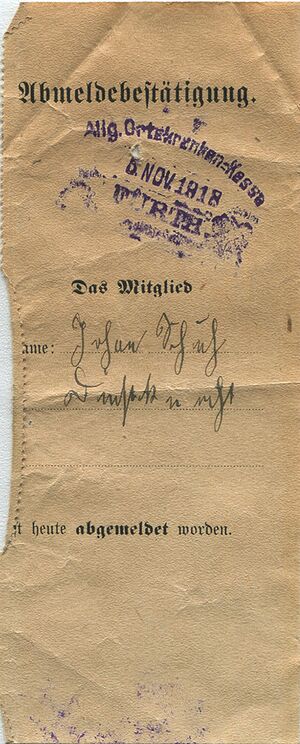 Abmeldebestätigung.
Allg. Ortskranken-Kasse
6. NOV. 1918
FÜRTH
Das Mitglied
ame: Johan Schuh
Dienstknecht
t heute abgemeldet worden.